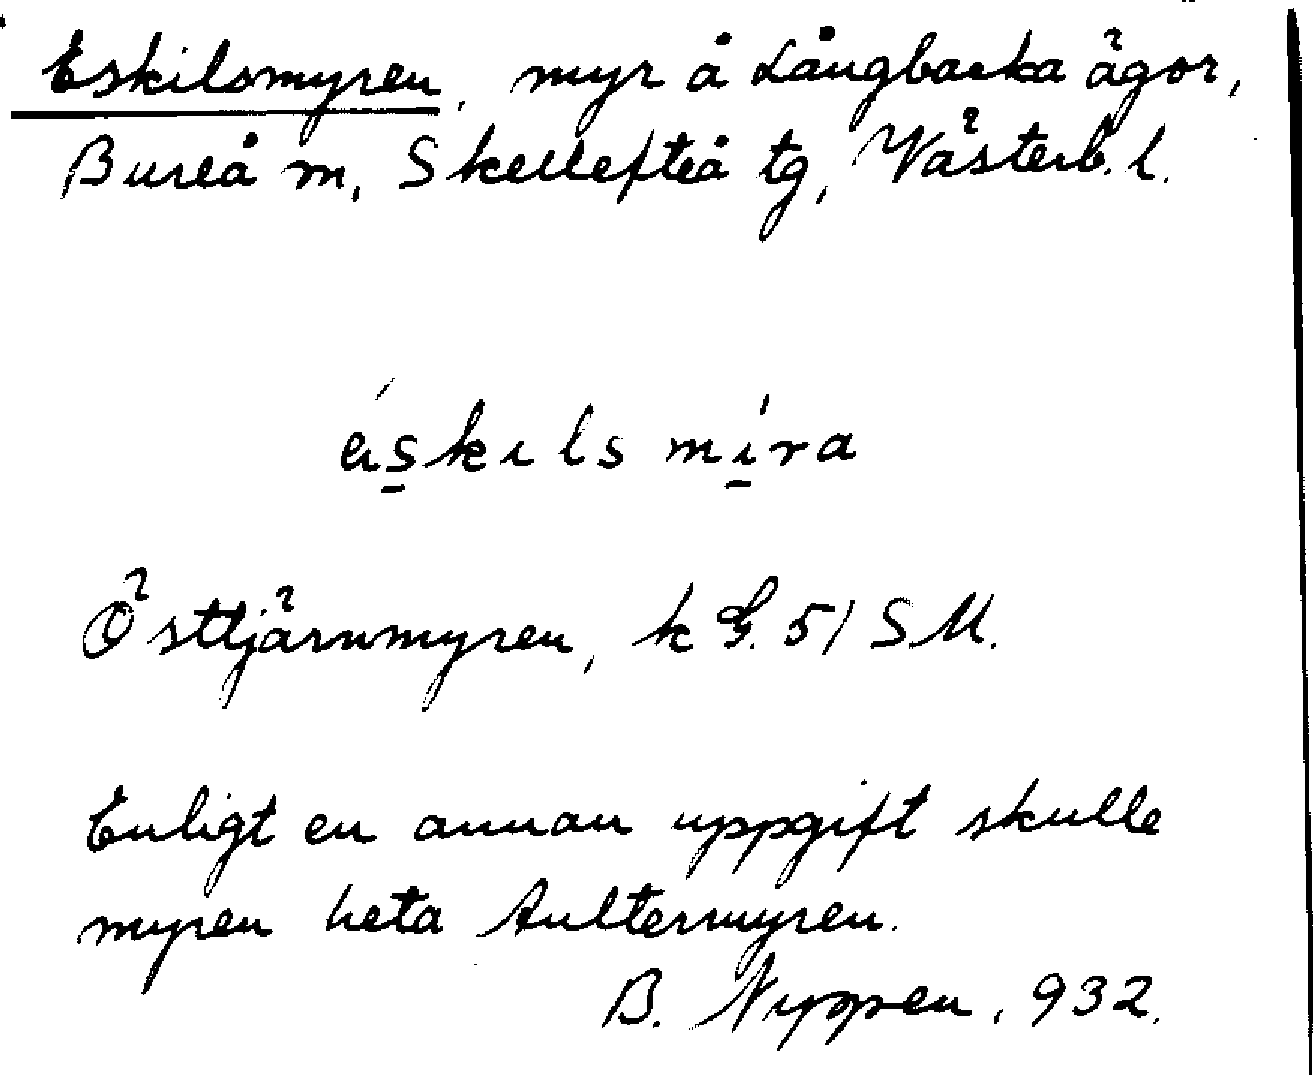 Eskilsmyren, myr å Långbacka ägor,
Bureå m, Skellefteå tg, Västerb. l.
éskɩls míra
Östtjärnmyren, k G. 51 SM.
Enligt en annan uppgift skulle
myren heta Aultermyren.
B. Nyppen, 932.